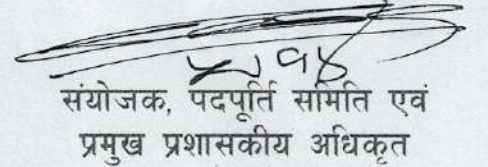 संयोजक, पदपूर्ति समिति एवं
प्रमुख प्रशासकीय अधिकृत